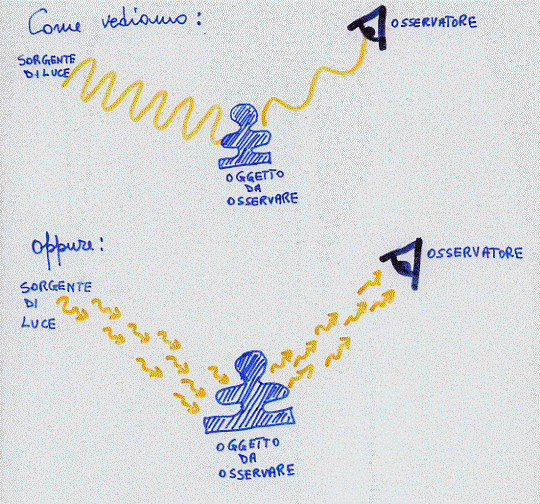 Come vediamo:
OSSERVATORE
SORGENTE
DI LUCE
OGGETTO
DA
OSSERVARE
oppure:
OSSERVATORE
SORGENTE
DI
LUCE
OGGETTO
DA
OSSERVARE